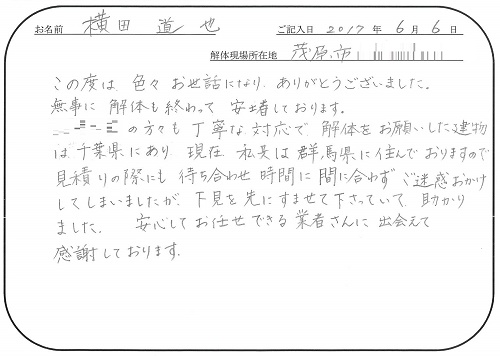 お名前 横田 道也 ご記入日 2017年 6月 6日
解体現場所在地 茂原市
この度は、色々お世話になり、ありがとうございました。
無事に解体も終わって安堵しております。
の方々も丁寧な対応で、解体をお願いした建物
は千葉県にあり、現在、私共は群馬県に住んでおりますので
見積りの際にも待ち合わせ時間に間に合わずご迷惑おかけ
してしまいましたが、下見を先にすませて下さっていて、助かり
ました。 安心してお任せできる業者さんに出会えて
感謝しております。